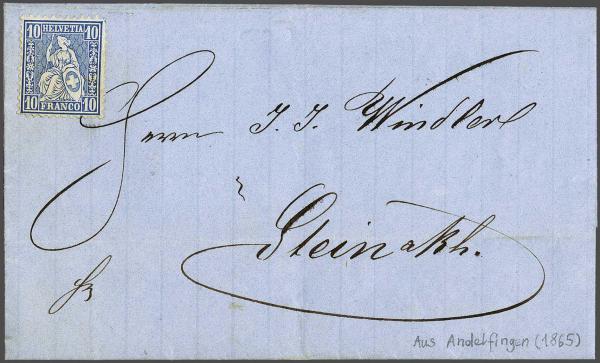 10 HELVETIA 10
10 FRANCO 10
Herrn J. J. Windler
Steinakh.
Aus Andelfingen (1865)